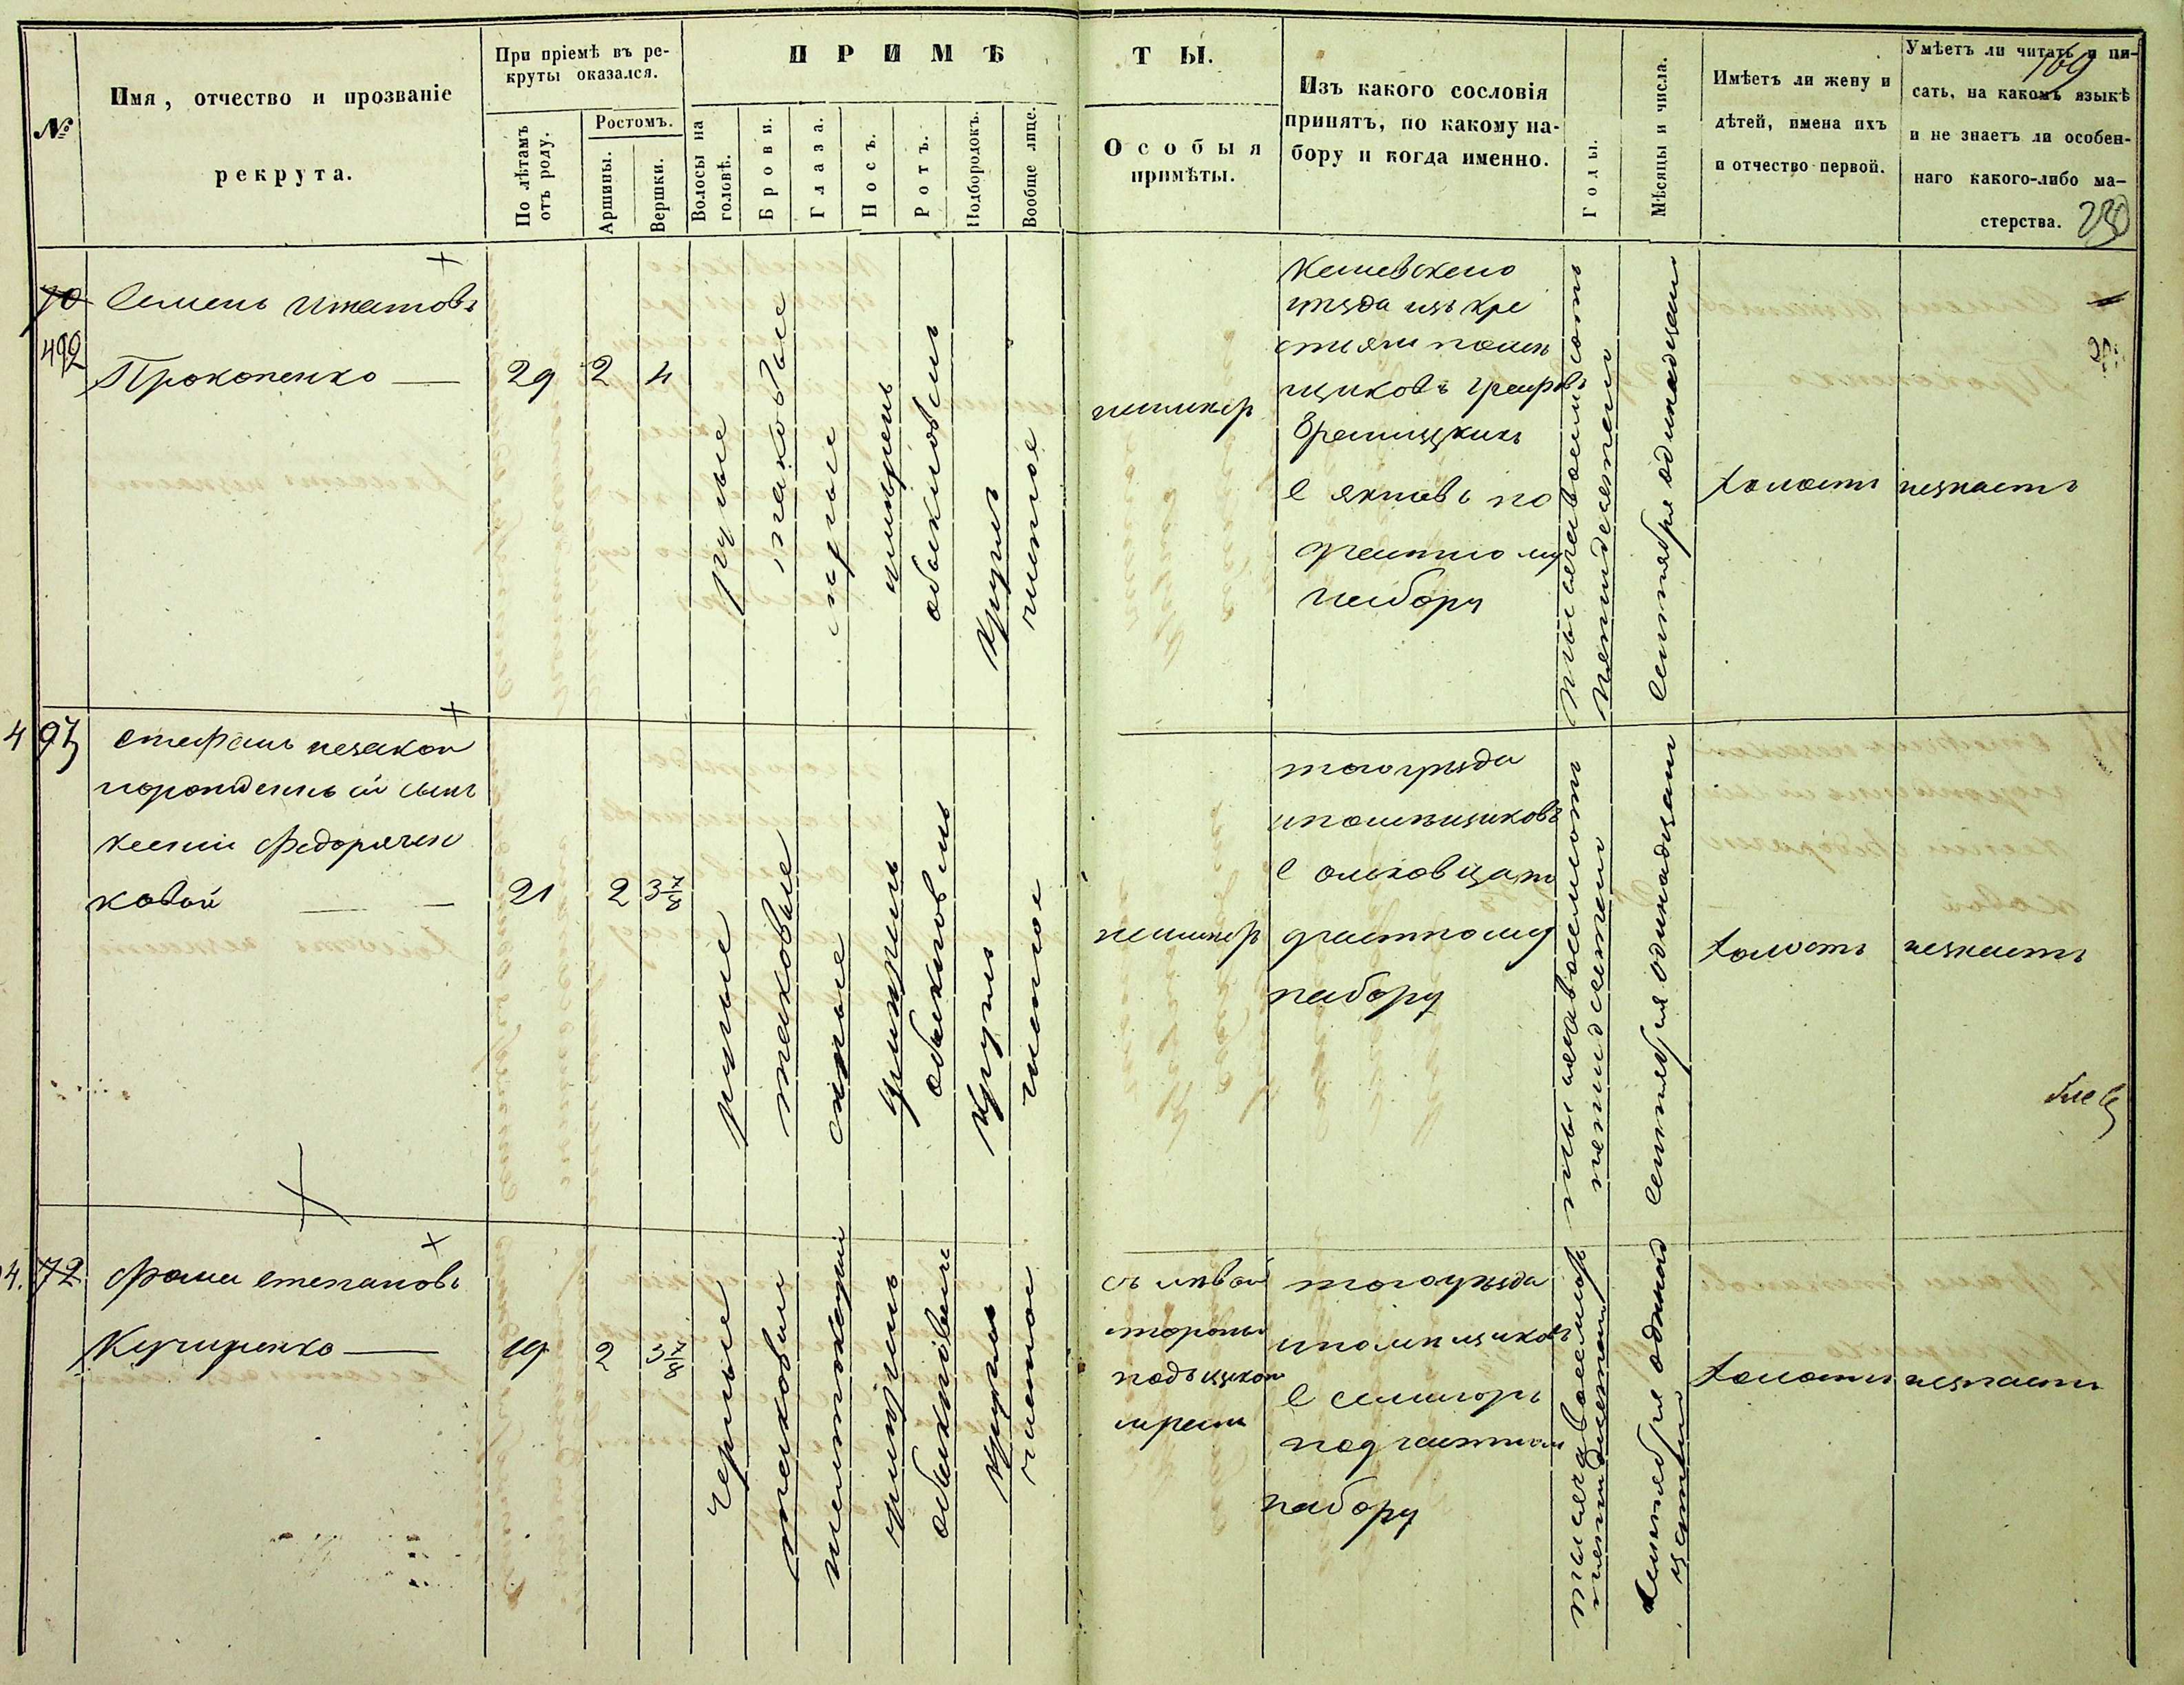 №
Имя, отчество и прозваніе
рекрута.
При пріемѣ въ ре-
круты оказался.
По лѣтамъ
отъ роду.
Ростомъ.
Аршины.
Вершки.
ПРИМѢ
ТЫ.
Волосы на
головѣ.
Брови.
Глаза.
Носъ.
Ротъ.
Подбородокъ.
Вообще лице.
Особыя
примѣты.
Изъ какого сословія
принятъ, по какому на-
бору и когда именно.
Годы.
Мѣсяцы и числа.
Имѣетъ ли жену и
дѣтей, имена ихъ
и отчество первой.
Умѣетъ ли читать и пи-
сать, на какомъ языкѣ
и не знаетъ ли особен-
наго какого-либо ма-
стерства.
169
230
70
492
Семенъ Игнатовъ
Прокопенко
29
2
4
русые
таковые
серые
умѣренъ
обыкновенъ
круглъ
чистое
неимѣетъ
Кіевскаго
уѣзда изъ кре
стьянъ помѣ
щиковъ графовъ
Браницкихъ
с
по
частному
набору
тысяча восемьсотъ
пятидесятаго
Сентября одинадцат
холостъ
незнаетъ
4
Стефанъ незакон
норожденный сынъ
Ксеніи Федорячен
ковой
21
2
3 7/8
русые
таковые
серые
умѣренъ
обыкновенъ
круглъ
чистое
неимѣетъ
того уѣзда
ипомѣщиковъ
с
частному
набору
тысяча восемьсотъ
пятидесятаго
Сентября одинадцат
холостъ
незнаетъ
4. 72
Фома Степановъ
Кучиренко
19
2
3 7/8
черные
таковые
желтокаріи
умѣренъ
обыкновенъ
круглъ
чистое
съ лѣвой
стороны
подъ щекою
шрамъ
того уѣзда
ипомѣщиковъ
с
по частному
набору
тысяча восемьсотъ
пятидесятаго
Сентября одинад
цат
холостъ
незнаетъ